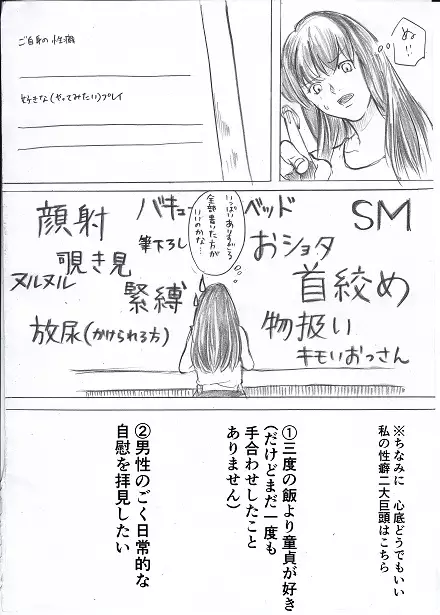 ご自身の性癖
好きな(やってみたい)プレイ
ぬ!!
いっぱいありすぎる
全部書いた方が
いいのかな…
SM
ベッド
バキューム
顔射
筆下ろし
おショタ
覗き見
ヌルヌル
首絞め
緊縛
物扱い
放尿(かけられる方)
キモいおっさん
※ちなみに 心底どうでもいい
私の性癖二大巨頭はこちら
①三度の飯より童貞が好き
(だけどまだ一度も
手合わせしたこと
ありません)
②男性のごく日常的な
自慰を拝見したい